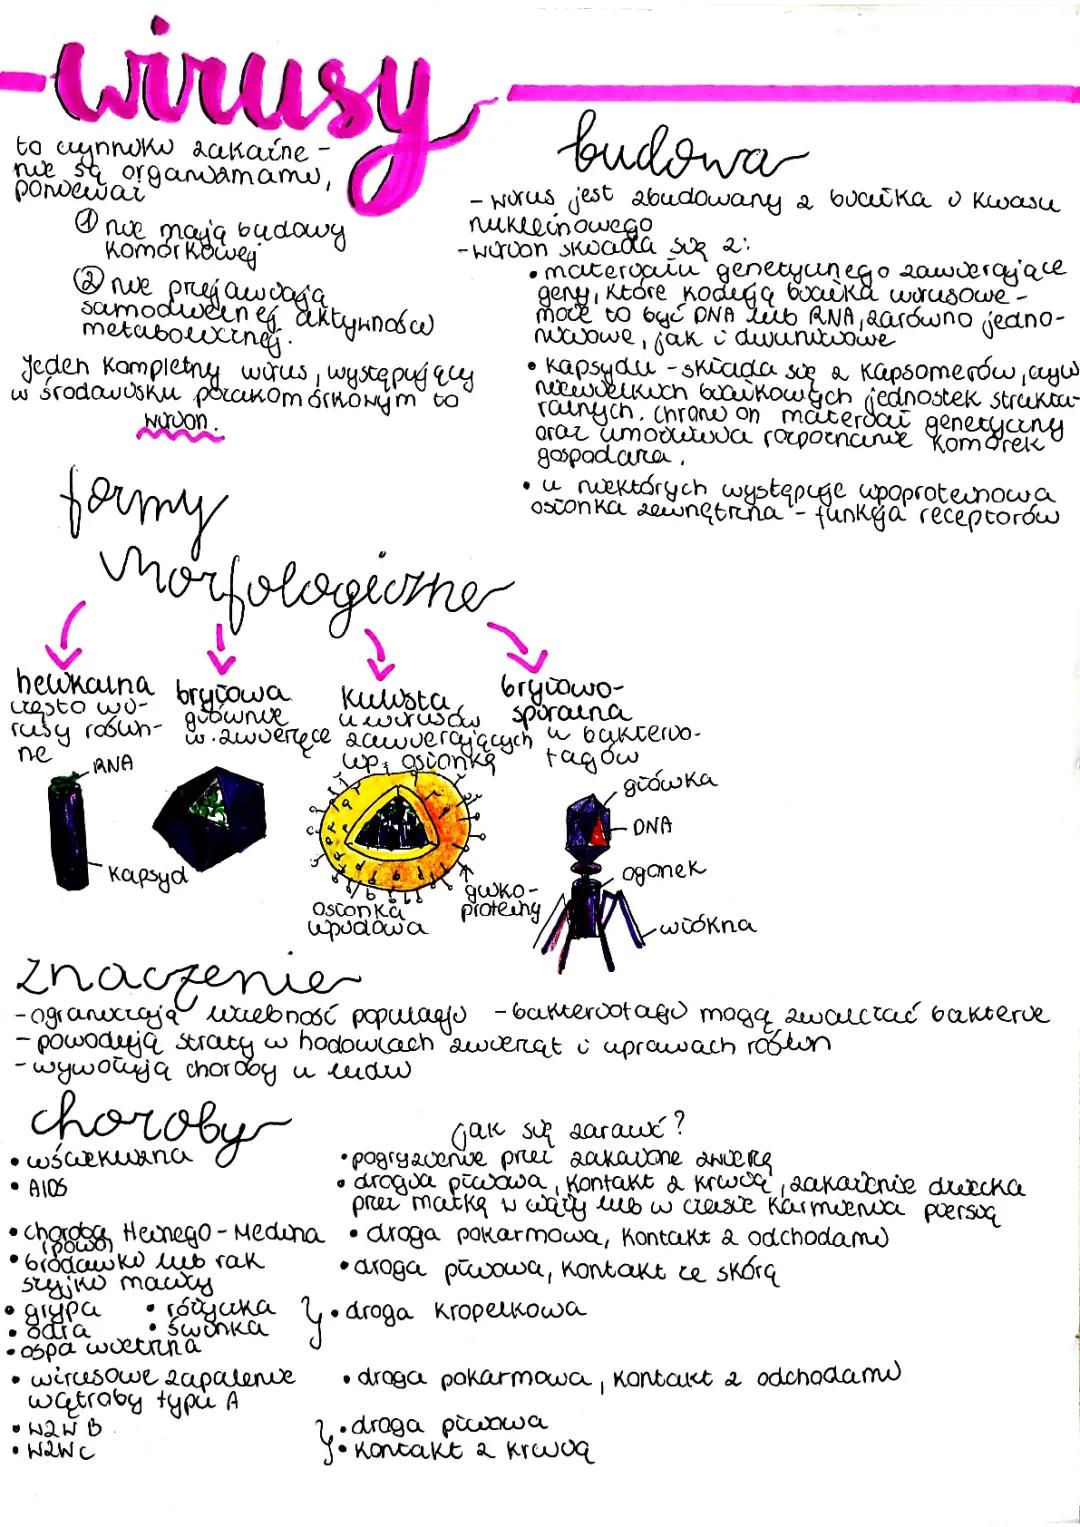 -wirusy
to czynniki zakaźne -
nie są organizmami,
ponieważ
① nie mają budowy
komórkowej
② nie przejawiają
samodzielnej aktywności
metabolicznej.
Jeden kompletny wirus, występujący
w środowisku pozakomórkowym to
wirion.
budowa
- wirus jest zbudowany z białka i kwasu
nukleinowego
- wirion składa się z:
• materiału genetycznego zawierające
geny, które kodują białka wirusowe -
może to być DNA lub RNA, zarówno jedno-
niciowe, jak i dwuniciowe
• kapsydu - składa się z kapsomerów, czyli
niewielkich białkowych jednostek struktu-
ralnych. Chroni on materiał genetyczny
oraz umożliwia rozpoznanie komórek
gospodarza.
• u niektórych występuje lipoproteinowa
osłonka zewnętrzna - funkcja receptorów
formy
morfologiczne
helikalna
często wi-
rusy roślin-
ne
RNA
kapsyd
bryłowa
głównie
w. zwierzęce
kulista
u wirusów
zawierających
lip. osłonkę
osłonka
lipidowa
gliko-
proteiny
bryłowo-
spiralna
u bakterio-
fagów
główka
DNA
ogonek
włókna
znaczenie
- ograniczają liczebność populacji - bakteriofagi mogą zwalczać bakterie
- powodują straty w hodowlach zwierząt i uprawach roślin
- wywołują choroby u ludzi
choroby
jak się zarazić?
• wścieklizna
• pogryzienie przez zakażone zwierzę
• AIDS
• droga płciowa, kontakt z krwią, zakażenie dziecka
przez matkę w ciąży lub w czasie karmienia piersią
• choroba Heinego-Medina
(polio)
• droga pokarmowa, kontakt z odchodami
• brodawki lub rak
szyjki macicy
• droga płciowa, kontakt ze skórą
• grypa • różyczka
• odra • świnka
• ospa wietrzna
} • droga kropelkowa
• wirusowe zapalenie
wątroby typu A
• droga pokarmowa, kontakt z odchodami
• WZW B
• WZW C
} • droga płciowa
• kontakt z krwią